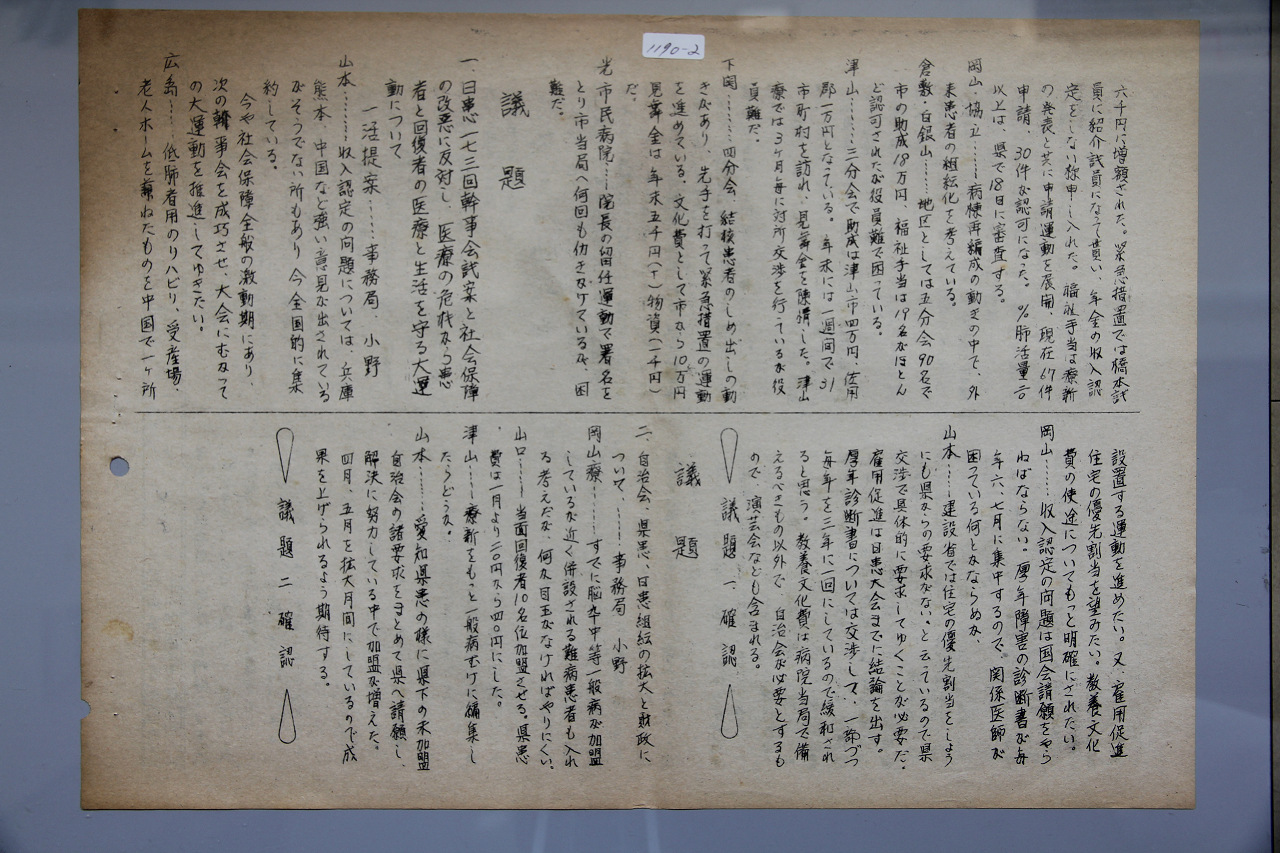 1190-2
六千円に増額された。緊急措置では橋本試
員に紹介試員になって貰い、年金の収入認
定をしない様申し入れた。福祉手当は療新
の発表と共に申請運動を展開、現在67件
申請 30件が認可になった。%肺活量二〇
以上は、県で18日に審査する。
岡山・協立……病棟再編成の動きの中で、外
来患者の組織化を考えている。
倉敷・白銀山……地区としては五分会90名で
市の助成18万円、福祉手当は19名がほとん
ど認可されたが役員難で困っている。
津山……三分会で助成は津山市四万円、佐用
郡一万円となっている。年末には一週間で31
市町村を訪れ、見舞金を陳情した。津山
療では3ヶ月毎に対所交渉を行っているが役
員難だ。
下関……四分会、結核患者のしめ出しの動
きがあり、先手を打って緊急措置の運動
を進めている。文化費として市から10万円
見舞金は年末五千円(T)物資(一千円)
だ。
光市民病院……院長の留任運動で署名を
とり市当局へ何回も働きかけているが、困
難だ。
議題
一、日患一七三回幹事会試案と社会保障
の改悪に反対し、医療の危機から患
者と回復者の医療と生活を守る大運
動について
一活提案……事務局、小野
山本……収入認定の問題については、兵庫
熊本、中国など強い意見が出されている
がそうでない所もあり今全国的に集
約している。
今や社会保障全般の激動期にあり、
次の幹事会を成巧させ、大会にむかって
の大運動を推進してゆきたい。
広島……低肺者用のリハビリ、受産場、
老人ホームを兼ねたものを中国で一ヶ所
設置する運動を進めたい。又、雇用促進
住宅の優先割当を望みたい。教養文化
費の使途についてもっと明確にされたい。
岡山……収入認定の問題は国会請願をやら
ねばならない。厚年障害の診断書が毎
年六、七月に集中するので、関係医師が
困っている何とかならぬか、
山本……建設省では住宅の優先割当をしよう
にも県からの要求がない。と云っているので県
交渉で具体的に要求してゆくことが必要だ。
雇用促進は日患大会までに結論を出す。
厚年診断書については交渉して、一部づつ
毎年を三年に一回にしているので緩和され
ると思う。教養文化費は病院当局で備
えるべきもの以外で、自治会が必要とするも
ので、演芸会なども含まれる。
議題一、確認
議題
二、自治会、県患、日患組織の拡大と財政に
ついて、……事務局 小野
岡山療……すでに脳卒中等一般病が加盟
しているが近く併設される難病患者も入れ
る考えだが、何か目玉がなければやりにくい。
山口……当面回復者10名位加盟させる。県患
費は一月より二〇円から四〇円にした。
津山……療新をもっと一般病むけに編集し
たらどうか。
山本……愛知県患の様に県下の未加盟
自治会の諸要求をまとめて県へ請願し、
解決に努力している中で加盟が増えた。
四月、五月を拡大月間にしているので成
果を上げられるよう期待する。
議題二確認